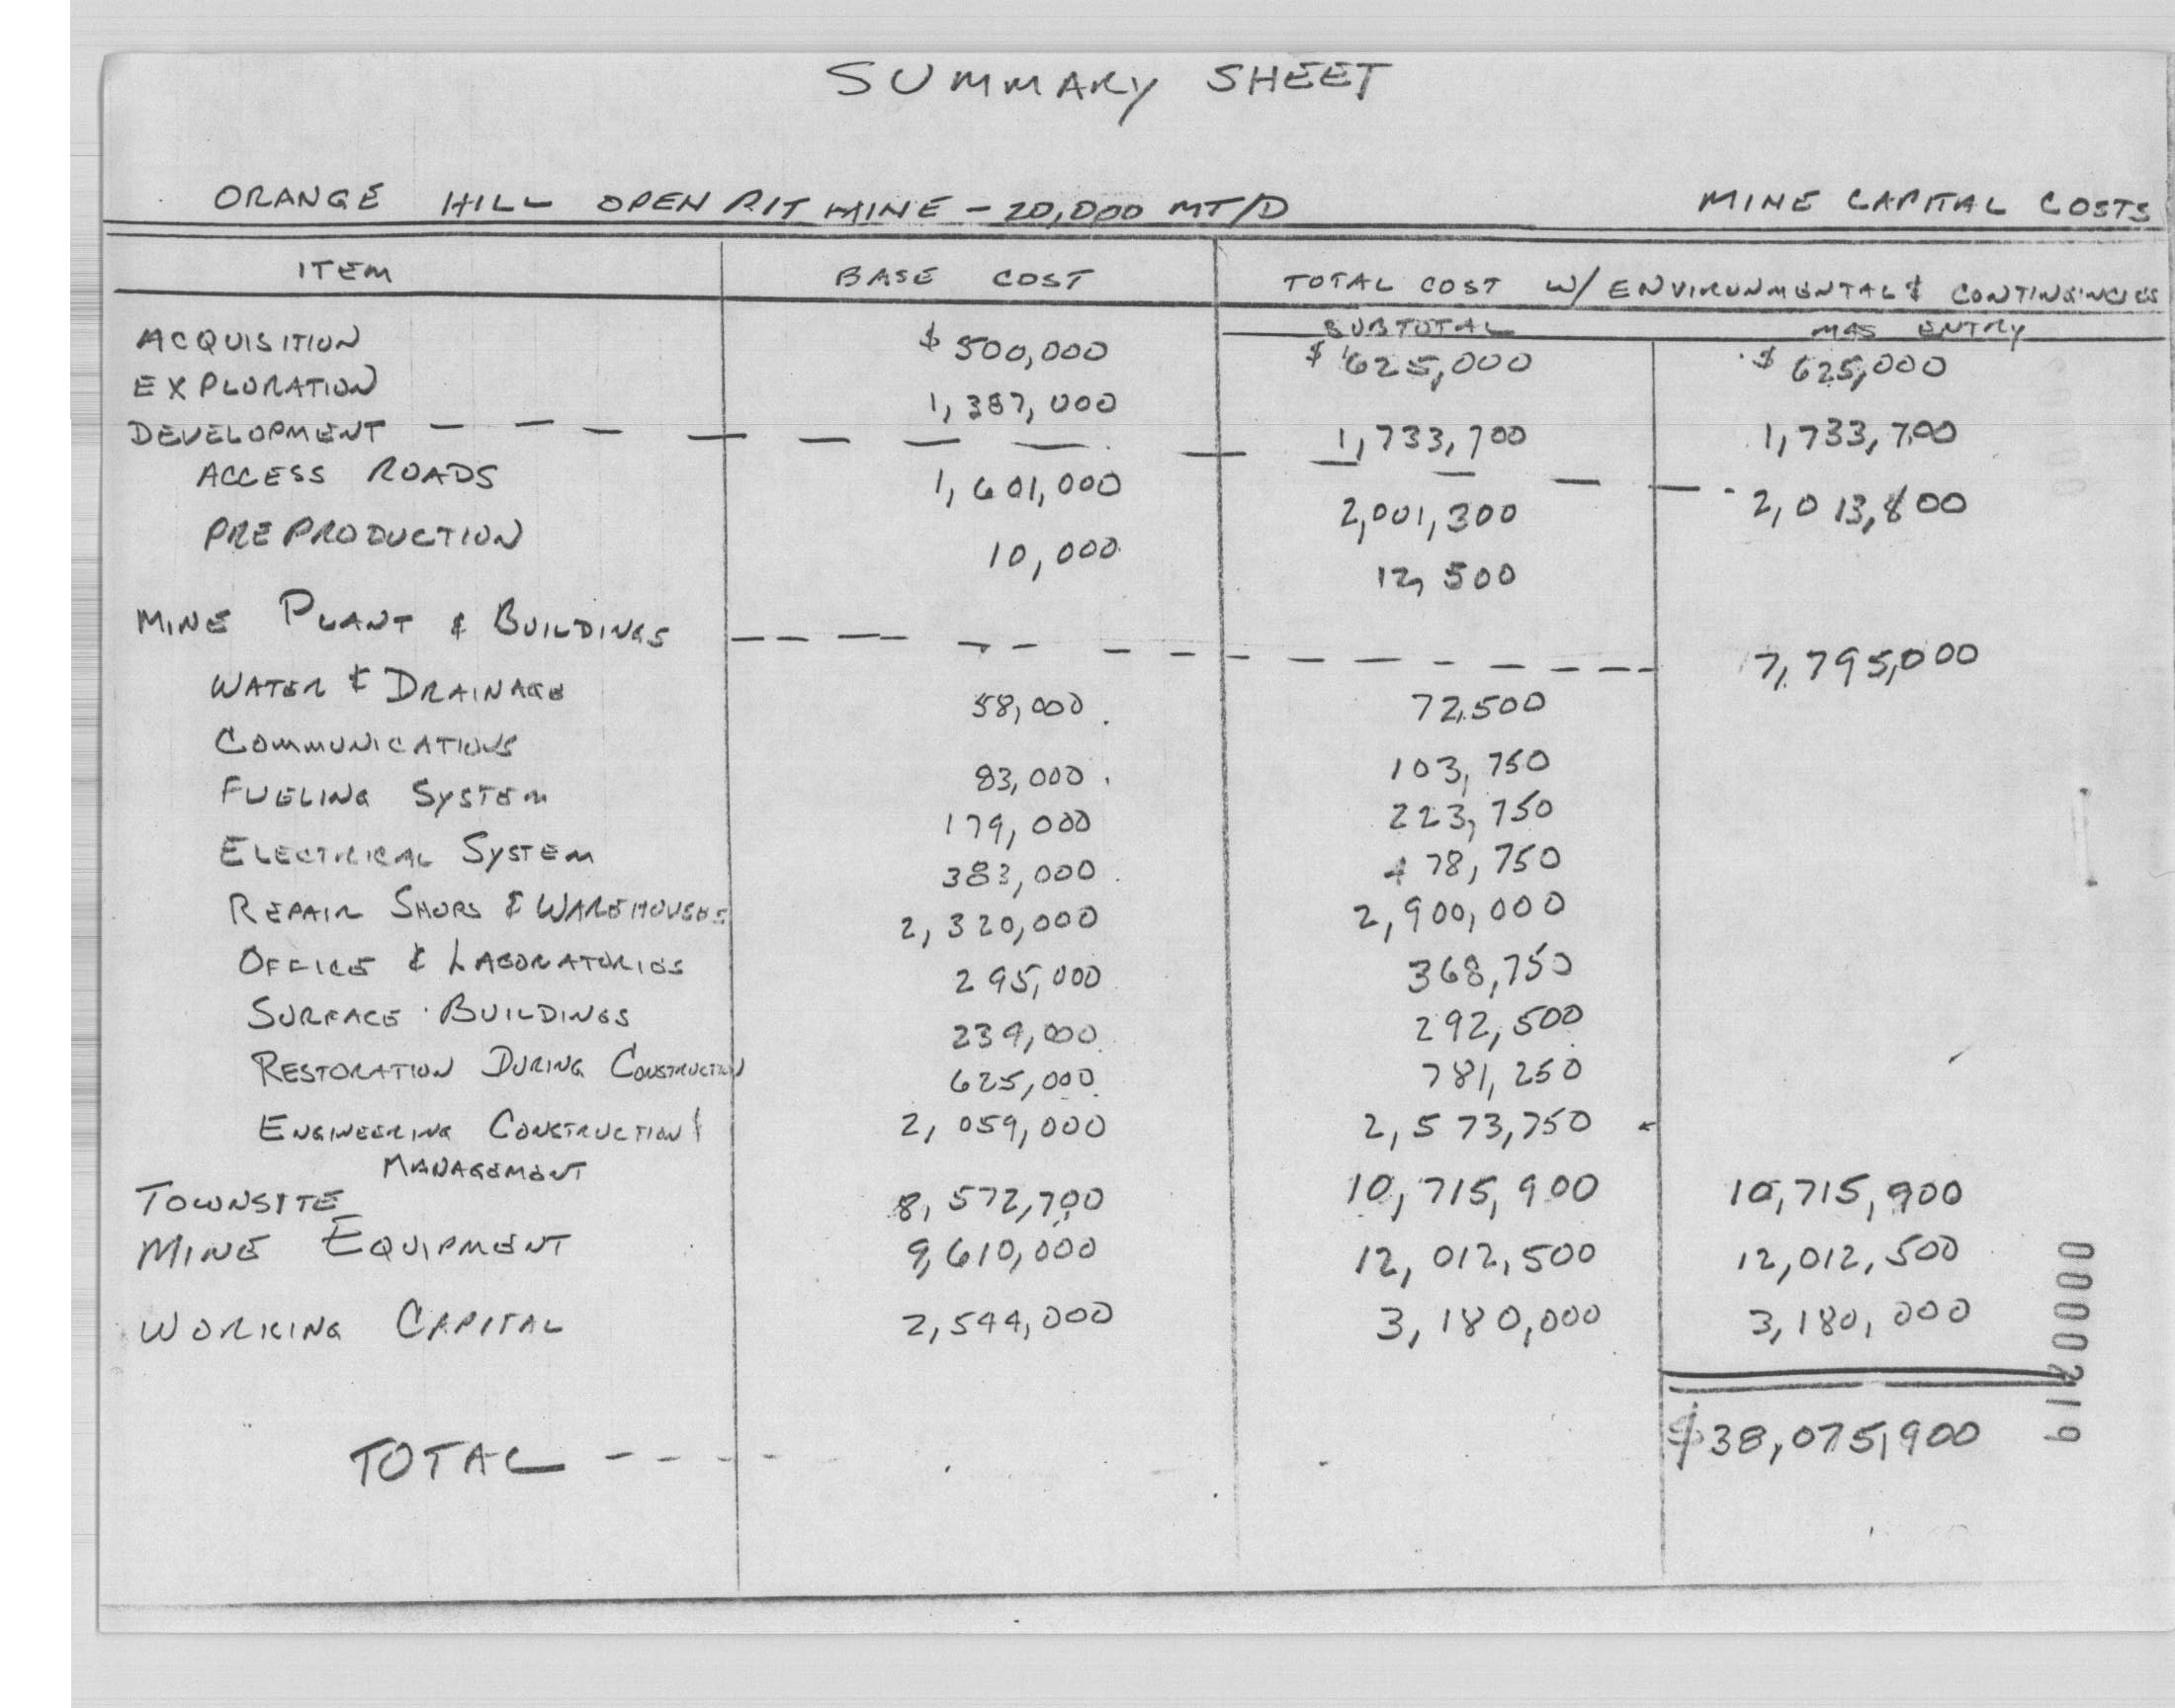 SUMMARY SHEET
ORANGE HILL OPEN PIT MINE - 20,000 MT/D MINE CAPITAL COSTS
ITEM BASE COST TOTAL COST W/ ENVIRONMENTAL & CONTINGINCIES
SUBTOTAL MAS ENTRY
ACQUISITION $ 500,000 $ 625,000 $ 625,000
EXPLORATION 1,387,000 1,733,700 1,733,700
DEVELOPMENT — — — — — — — — — — — — - 2,013,800
ACCESS ROADS 1,601,000 2,001,300
PREPRODUCTION 10,000 12,500
MINE PLANT & BUILDINGS — — — — — — — — — — — — 7,795,000
WATER & DRAINAGE 58,000 72,500
COMMUNICATIONS 83,000 103,750
FUELING SYSTEM 179,000 223,750
ELECTRICAL SYSTEM 383,000 478,750
REPAIR SHOPS & WAREHOUSES 2,320,000 2,900,000
OFFICE & LABORATORIES 295,000 368,750
SURFACE BUILDINGS 239,000 292,500
RESTORATION DURING CONSTRUCTION 625,000 781,250
ENGINEERING CONSTRUCTION & 2,059,000 2,573,750
MANAGEMENT
TOWNSITE 8,572,700 10,715,900 10,715,900
MINE EQUIPMENT 9,610,000 12,012,500 12,012,500
WORKING CAPITAL 2,544,000 3,180,000 3,180,000
TOTAL - - - - - $38,075,900
0000219